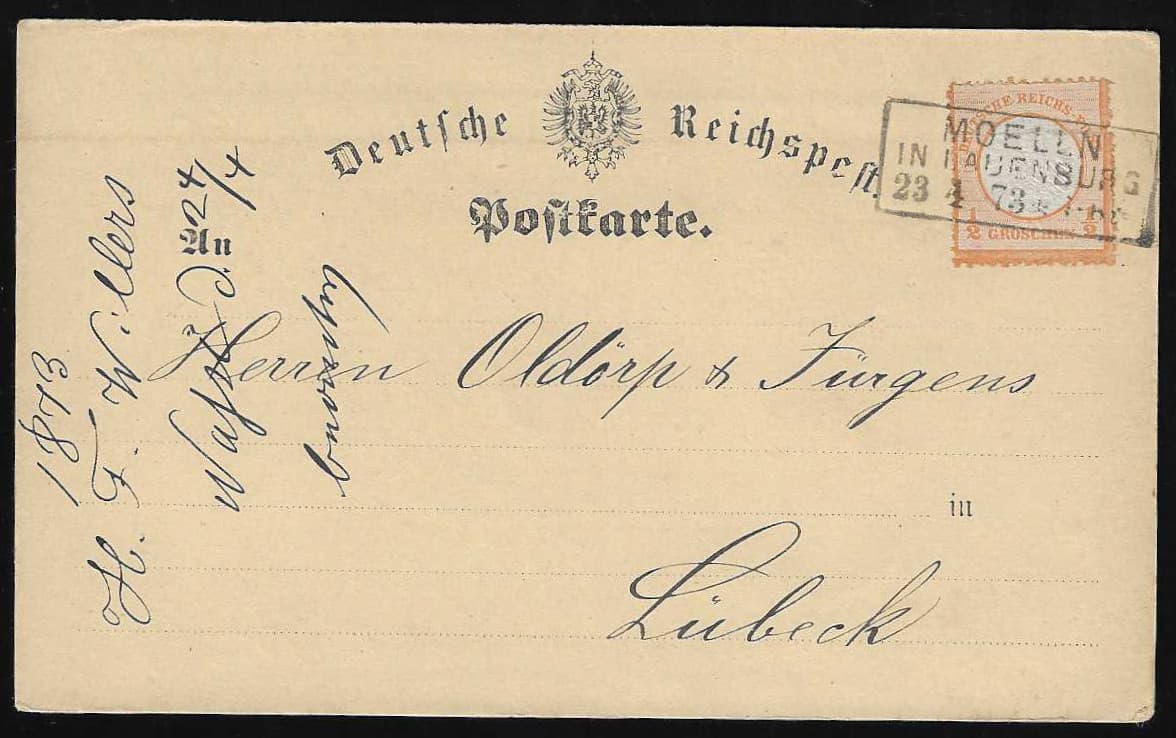 Deutsche Reichspost.
Postkarte.
DEUTSCHE REICHS-POST
½ GROSCHEN ½
MOELLN
IN LAUENBURG
23 4 73
An
Herren Oldörp & Jürgens
in
Lübeck
1873
H. F. Willers
d. 24/4